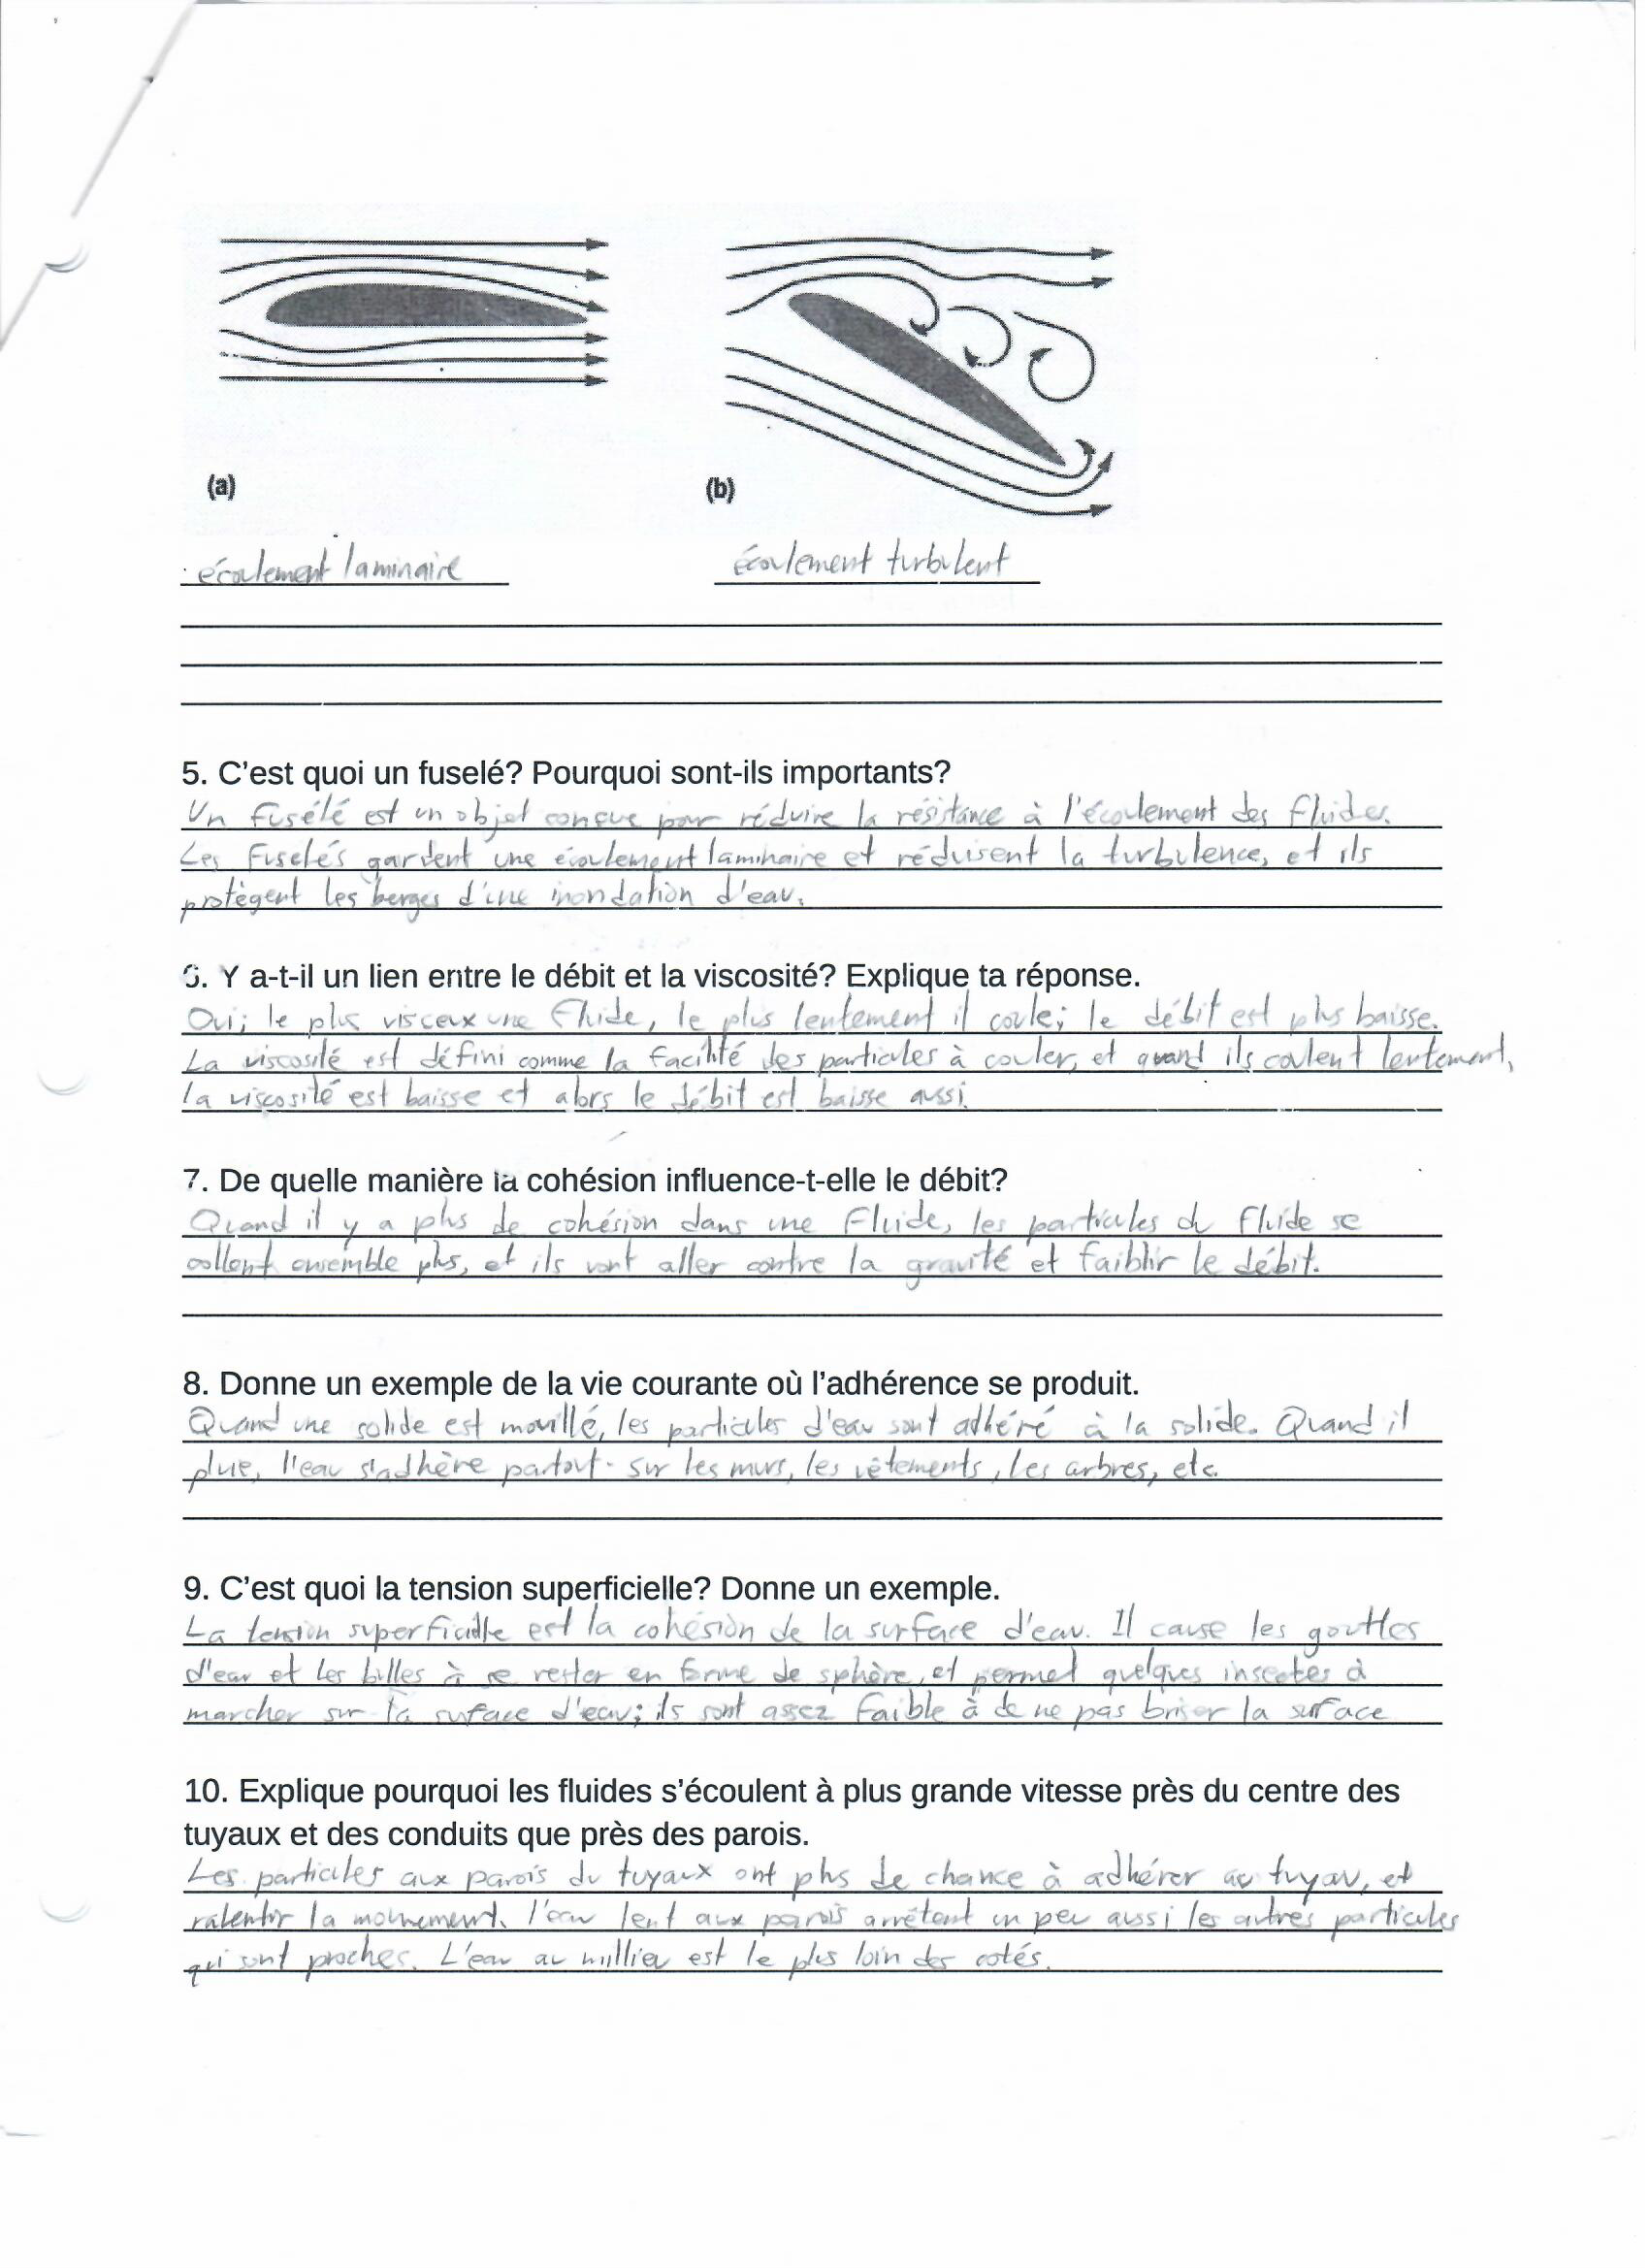 (a)
(b)
écoulement laminaire
écoulement turbulent
5. C'est quoi un fuselé? Pourquoi sont-ils importants?
Un fusélé est un objet conçue pour réduire la résistance à l'écoulement des fluides.
Les fuselés gardent une écoulement laminaire et réduisent la turbulence, et ils
protègent les berges d'une inondation d'eau.
6. Y a-t-il un lien entre le débit et la viscosité? Explique ta réponse.
Oui; le plus visceux une fluide, le plus lentement il coule; le débit est plus baisse.
La viscosité est défini comme la facilité des particules à couler, et quand ils coulent lentement,
la viscosité est baisse et alors le débit est baisse aussi.
7. De quelle manière la cohésion influence-t-elle le débit?
Quand il y a plus de cohésion dans une fluide, les particules du fluide se
collent ensemble plus, et ils vont aller contre la gravité et faiblir le débit.
8. Donne un exemple de la vie courante où l'adhérence se produit.
Quand une solide est mouillé, les particules d'eau sont adhéré à la solide. Quand il
plue, l'eau s'adhère partout - sur les murs, les vêtements, les arbres, etc.
9. C'est quoi la tension superficielle? Donne un exemple.
La tension superficielle est la cohésion de la surface d'eau. Il cause les gouttes
d'eau et les bulles à se rester en forme de sphère, et permet quelques insectes à
marcher sur la suface d'eau; ils sont assez faible à de ne pas briser la surface
10. Explique pourquoi les fluides s'écoulent à plus grande vitesse près du centre des
tuyaux et des conduits que près des parois.
Les particules aux parois du tuyaux ont plus de chance à adhérer au tuyau, et
ralentir la mouvement. l'eau lent aux parois arrêtent un peu aussi les autres particules
qui sont proches. L'eau au millieu est le plus loin des cotés.